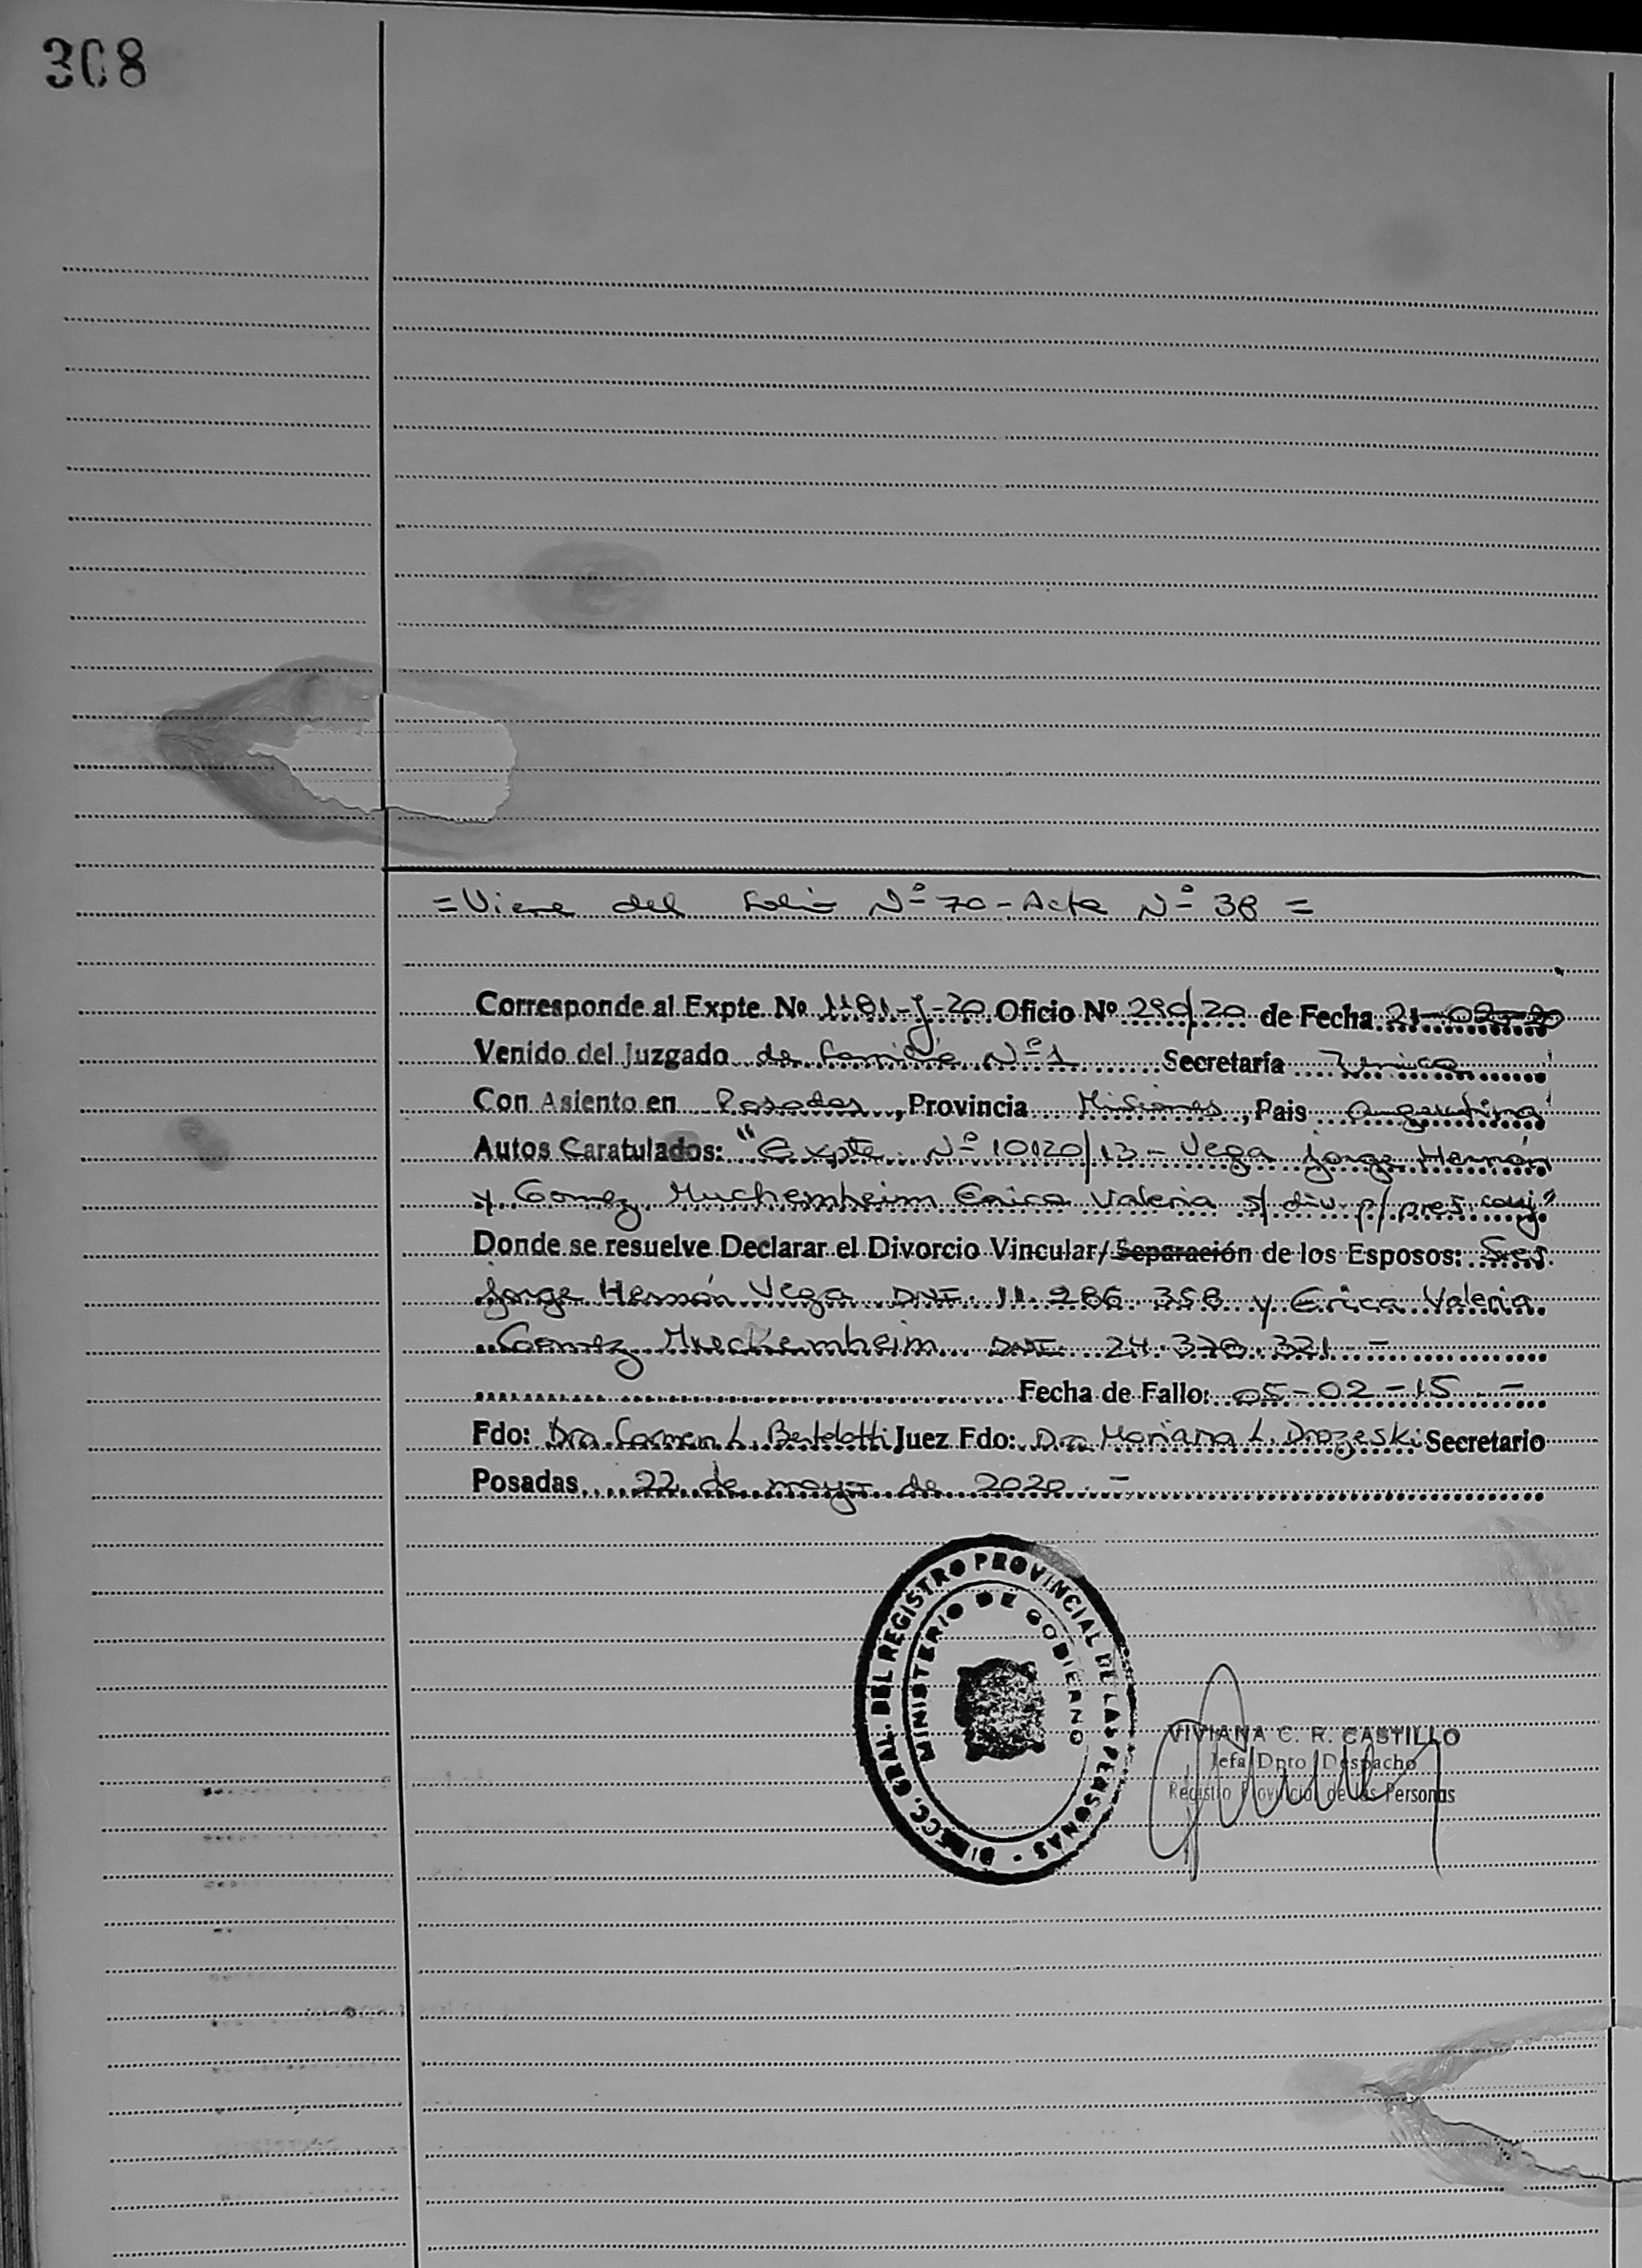 308
= Viene del folio Nº 70 - Acta Nº 38 =
Corresponde al Expte. Nº 1181-J-20 Oficio Nº 290/20 de Fecha 21-02-20
Venido del Juzgado de Familia Nº 1 Secretaría Unica
Con Asiento en Posadas, Provincia Misiones, Pais Argentina
Autos Caratulados: "Expte. Nº 10120/13 - Vega Jorge Hernán
y Gomez Muchemheim Erica Valeria s/ div. p/ pres. conj"
Donde se resuelve Declarar el Divorcio Vincular/Separación de los Esposos: Sres.
Jorge Hernán Vega DNI. 11.286.358 y Erica Valeria
Gomez Mueckemheim DNI. 24.378.321.-
Fecha de Fallo: 05-02-15.-
Fdo: Dra. Carmen L. Bertolotti Juez Fdo: Dra Mariana L. Drozeski Secretario
Posadas, 22 de mayo de 2020.-
DIRECC. GRAL. DEL REGISTRO PROVINCIAL DE LAS PERSONAS -
MINISTERIO DE GOBIERNO
VIVIANA C. R. CASTILLO
Jefa Dpto Despacho
Registro Provincial de las Personas